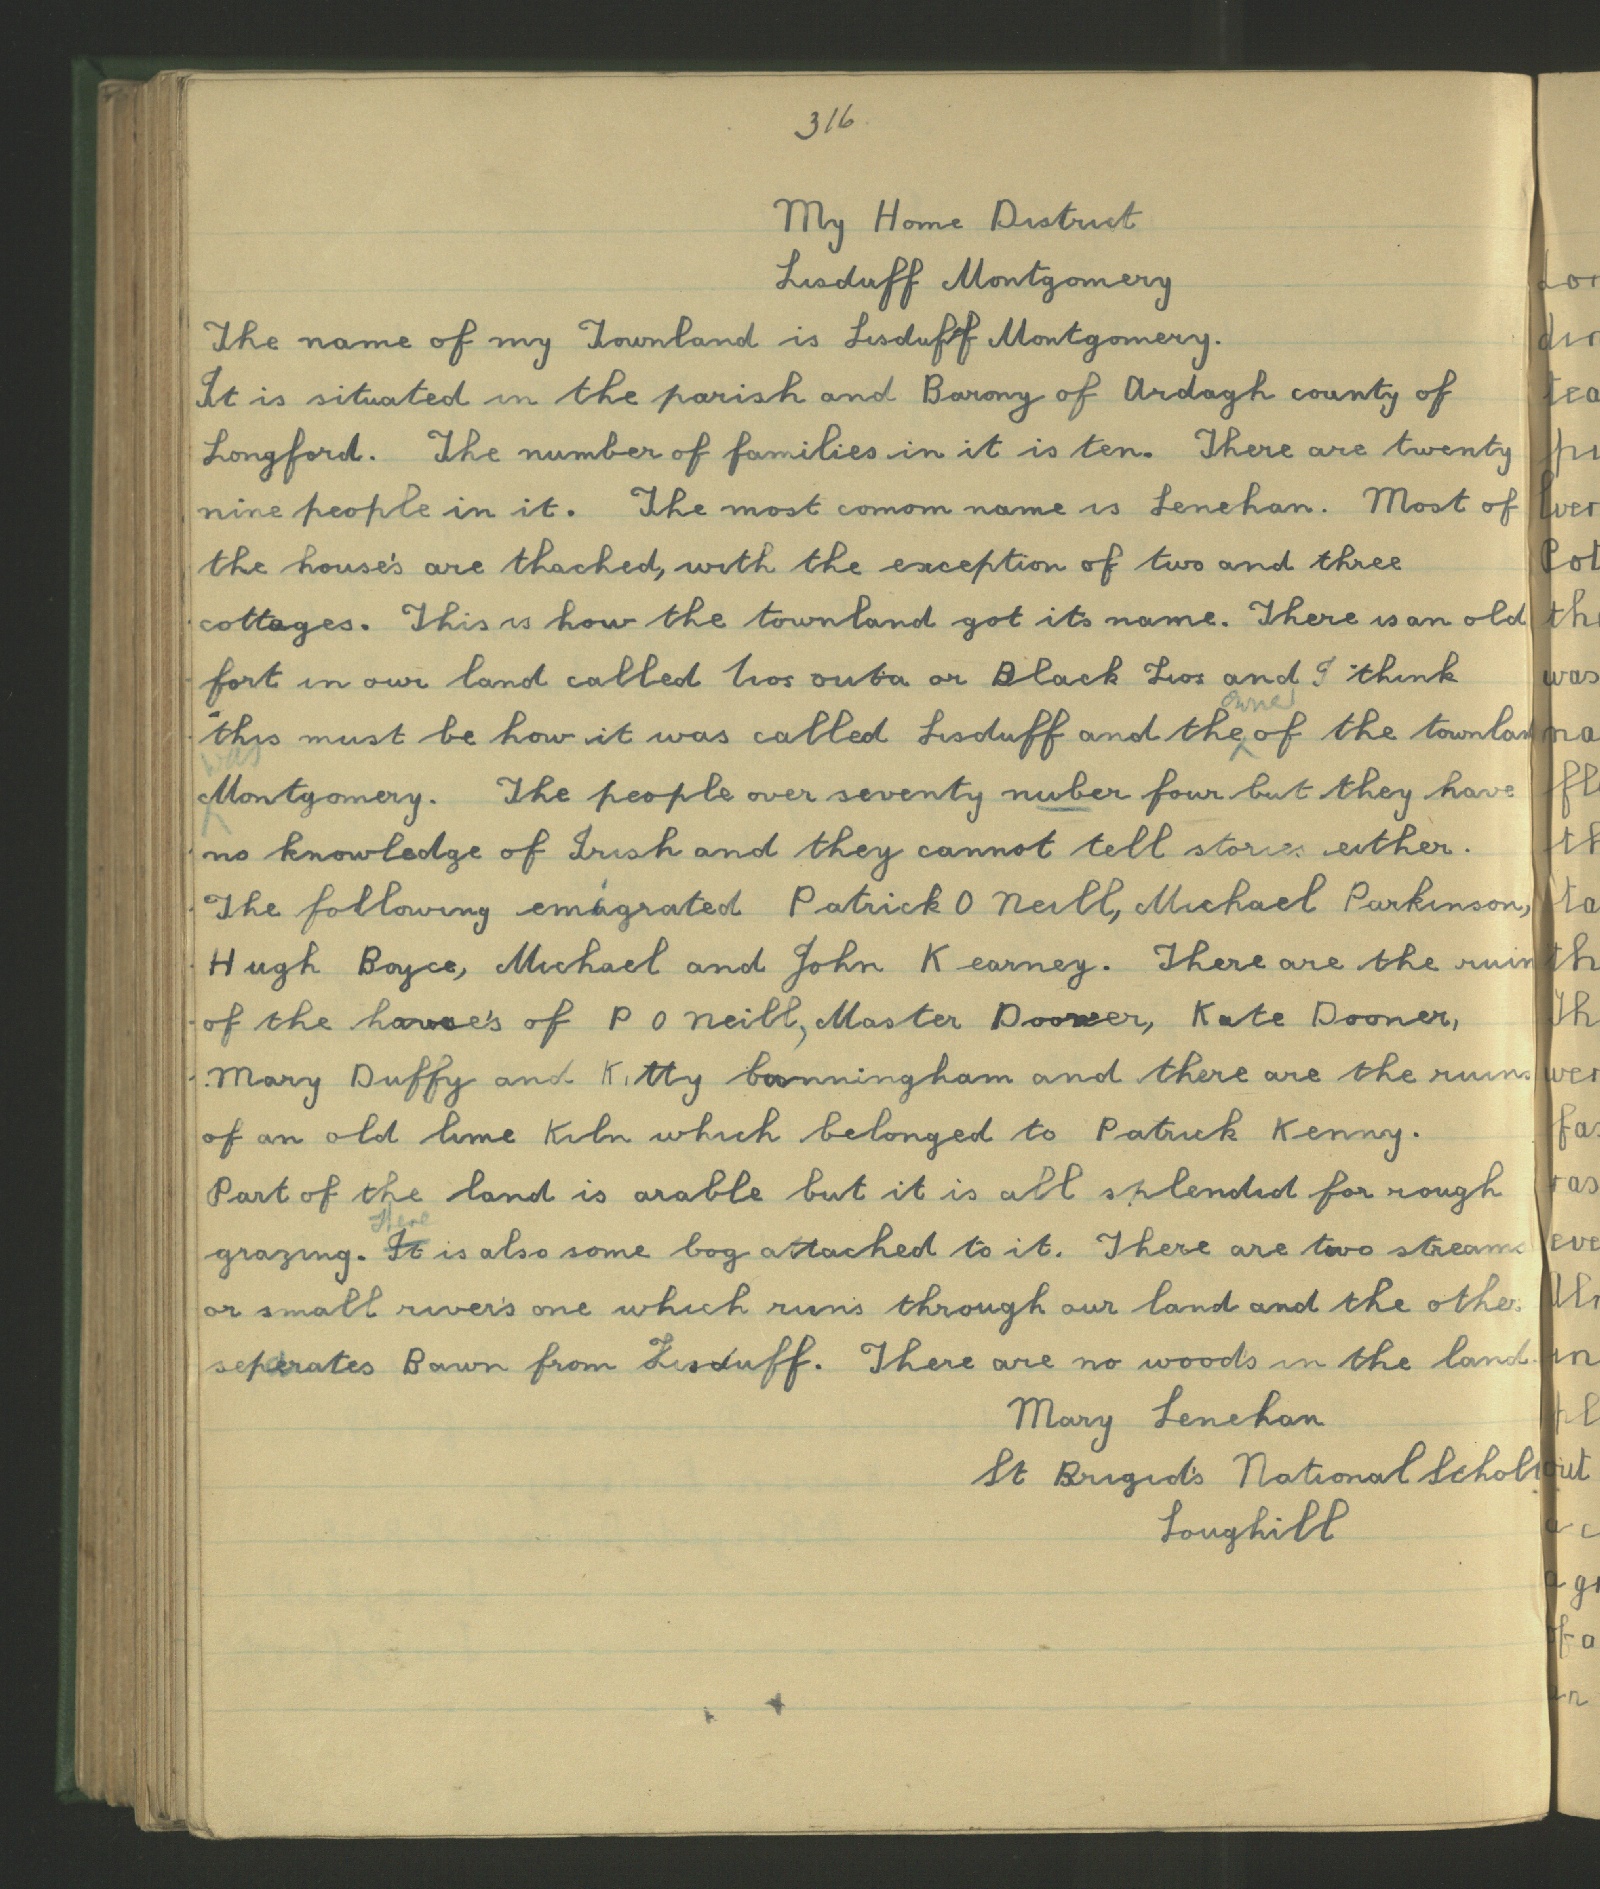 316
My Home District
Lisduff Montgomery
The name of my Townland is Lisduff Montgomery.
It is situated in the parish and Barony of Ardagh county of
Longford. The number of families in it is ten. There are twenty
nine people in it. The most comom name is Lenehan. Most of
the house's are thached, with the exception of two and three
cottages. This is how the townland got its name. There is an old
fort in our land called lios outa or Black Lios and I think
this must be how it was called Lisduff and the owner of the townlan
was Montgomery. The people over seventy nuber four but they have
no knowledge of Irish and they cannot tell stories either.
The following emigrated Patrick O Neill, Michael Parkinson,
Hugh Boyce, Michael and John Kearney. There are the ruin
of the house's of P O Neill, Master Dooner, Kate Dooner,
Mary Duffy and Kitty Cunningham and there are the ruins
of an old lime Kiln which belonged to Patrick Kenny.
Part of the land is arable but it is all splendid for rough
grazing. It Here is also some bog attached to it. There are two streams
or small river's one which runs through our land and the other
seperates Bawn from Lisduff. There are no woods in the land
Mary Lenehan
St Brigid's National School
Loughill